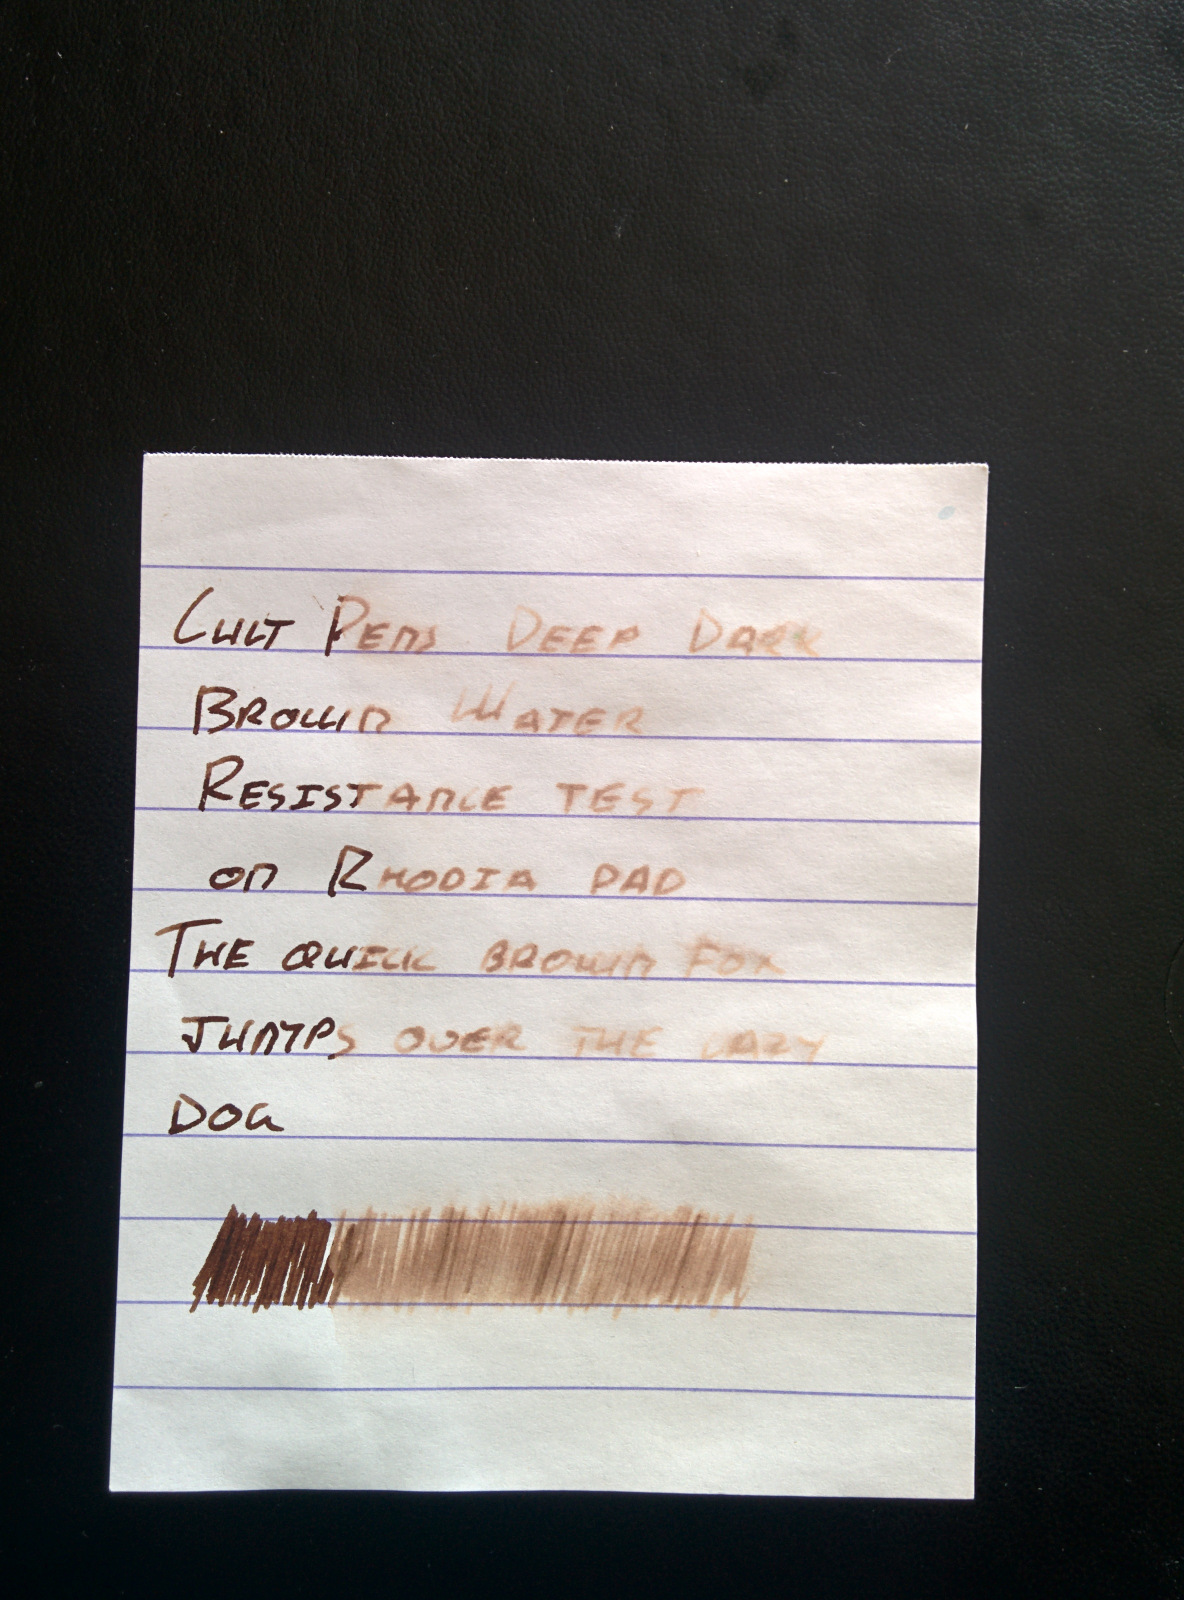 CULT PENS DEEP DARK
BROWN WATER
RESISTANCE TEST
ON RHODIA PAD
THE QUICK BROWN FOX
JUMPS OVER THE LAZY
DOG